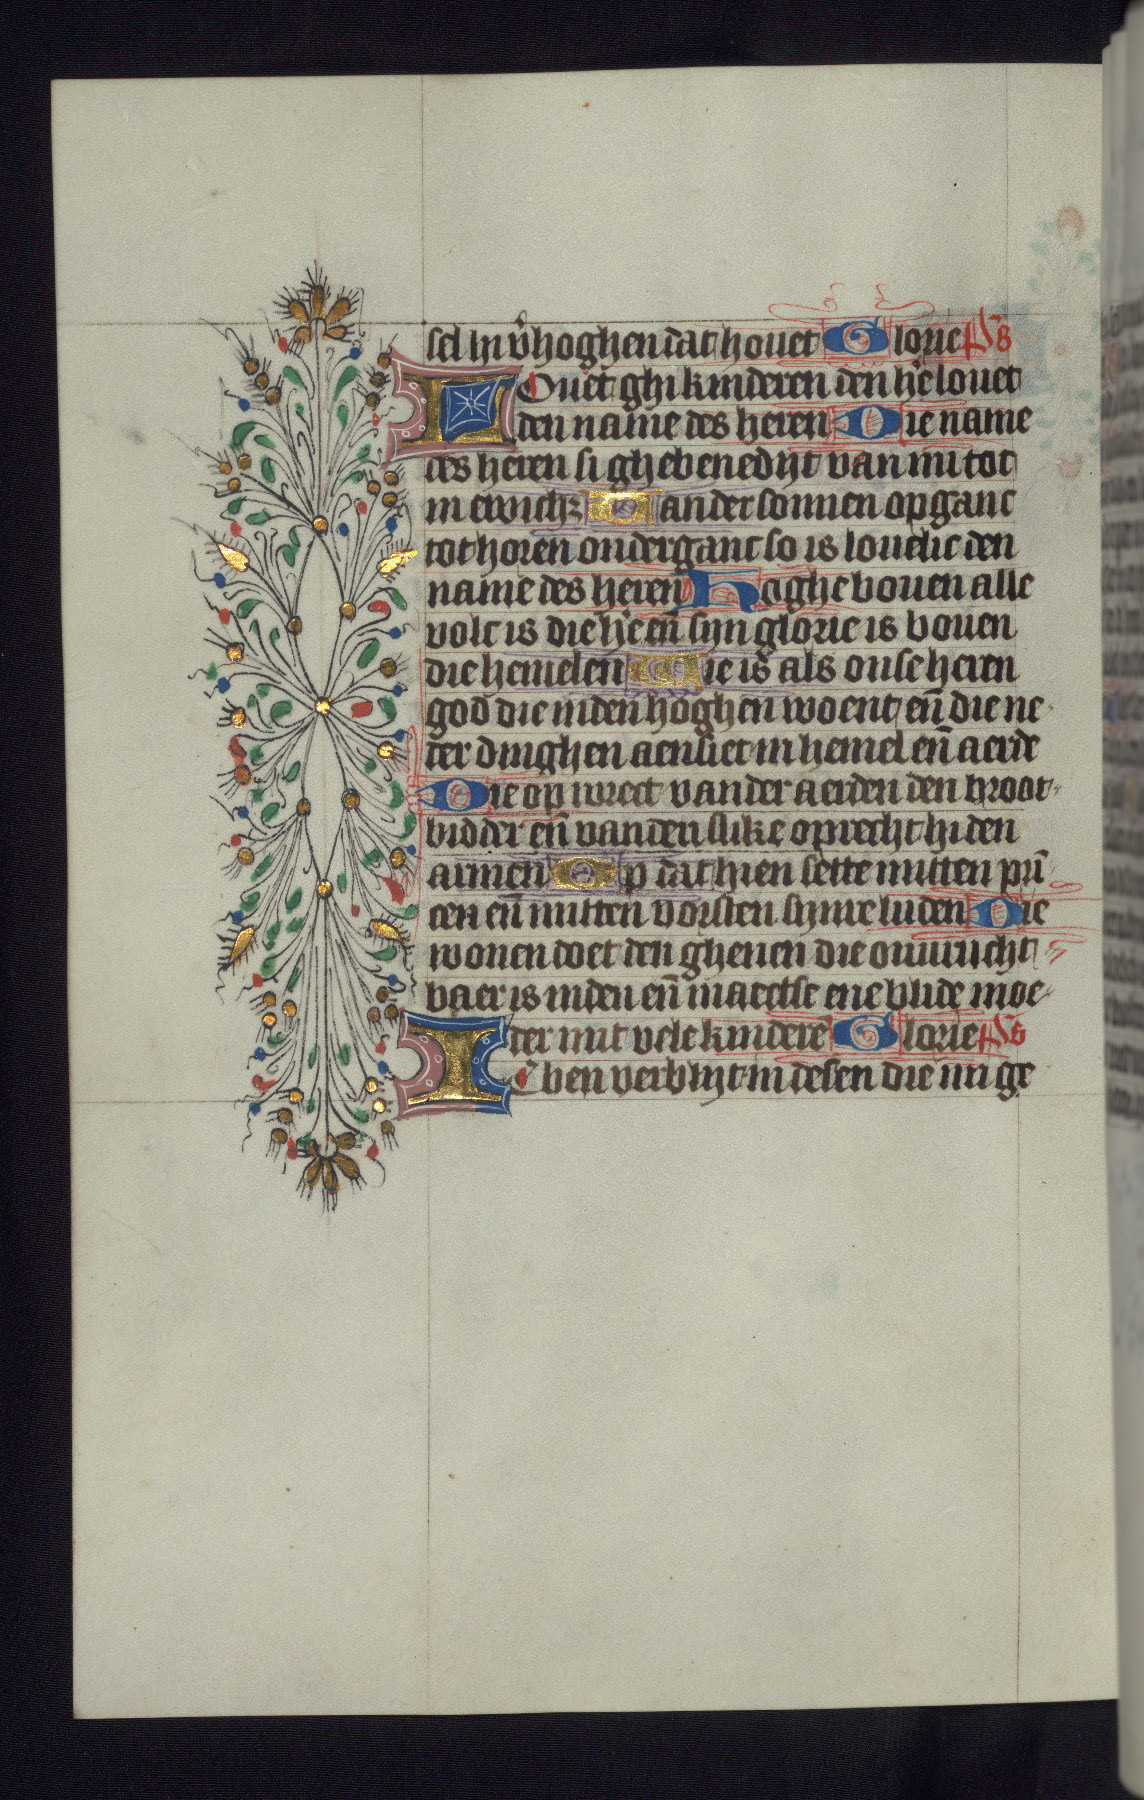 sel In v̄hoghen dat houet Glorie ps
LOuet ghi kinderen den hēe louet
den name des heren Die name
des heren si ghebenedijt van nu tot
in ewich Uander sonnen opganc
tot horen onderganc so is louelic den
name des heren Hoghe bouen alle
volc is die hēe eñ sijn glorie is bouen
die hemelen Wie is als onse heren
god die inden hoghen woent eñ die ne
der dinghen aensiet in hemel eñ aerde
Die op wrect vander aerden den broot
bidder eñ vanden slike oprecht hi den
armen Op dat hien sette mitten prī
cen eñ mitten vorsten synre luden Die
wonen doet den ghenen die onurucht
baer is inden eñ maectse ene blide moe
der mit vele kinderē Glorie ps
ICben verblijt in desen die mi ge